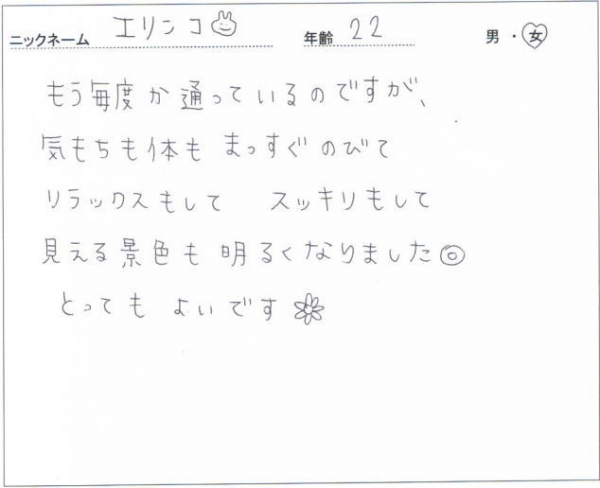 ニックネーム エリンコ 年齢 22 男・女
もう毎度か通っているのですが、
気もちも体も まっすぐのびて
リラックスもして スッキリもして
見える景色も明るくなりました◎
とっても よいです